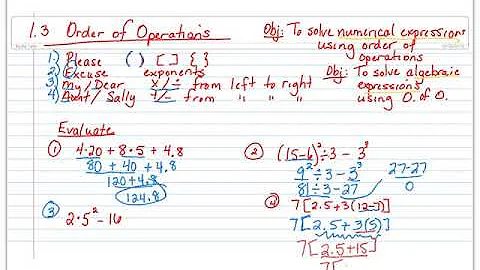 1.3 Order of Operations
Obj: To solve numerical expressions
using order of
operations
1) Please ( ) [ ] { }
2) Excuse exponents
3) My/Dear x/÷ from left to right
4) Aunt/Sally +/- from " " "
Obj: To solve algebraic
expressions
using O. of O.
Evaluate
① 4·20 + 8·5 + 4.8
80 + 40 + 4.8
120 + 4.8
124.8
② (15-6)²÷3 - 3³
9²÷3 - 3³
81÷3 - 27
27-27
0
③ 2·5² - 16
④ 7[2.5+3(12-7)]
7[2.5+3(5)]
7[2.5+15]
7[